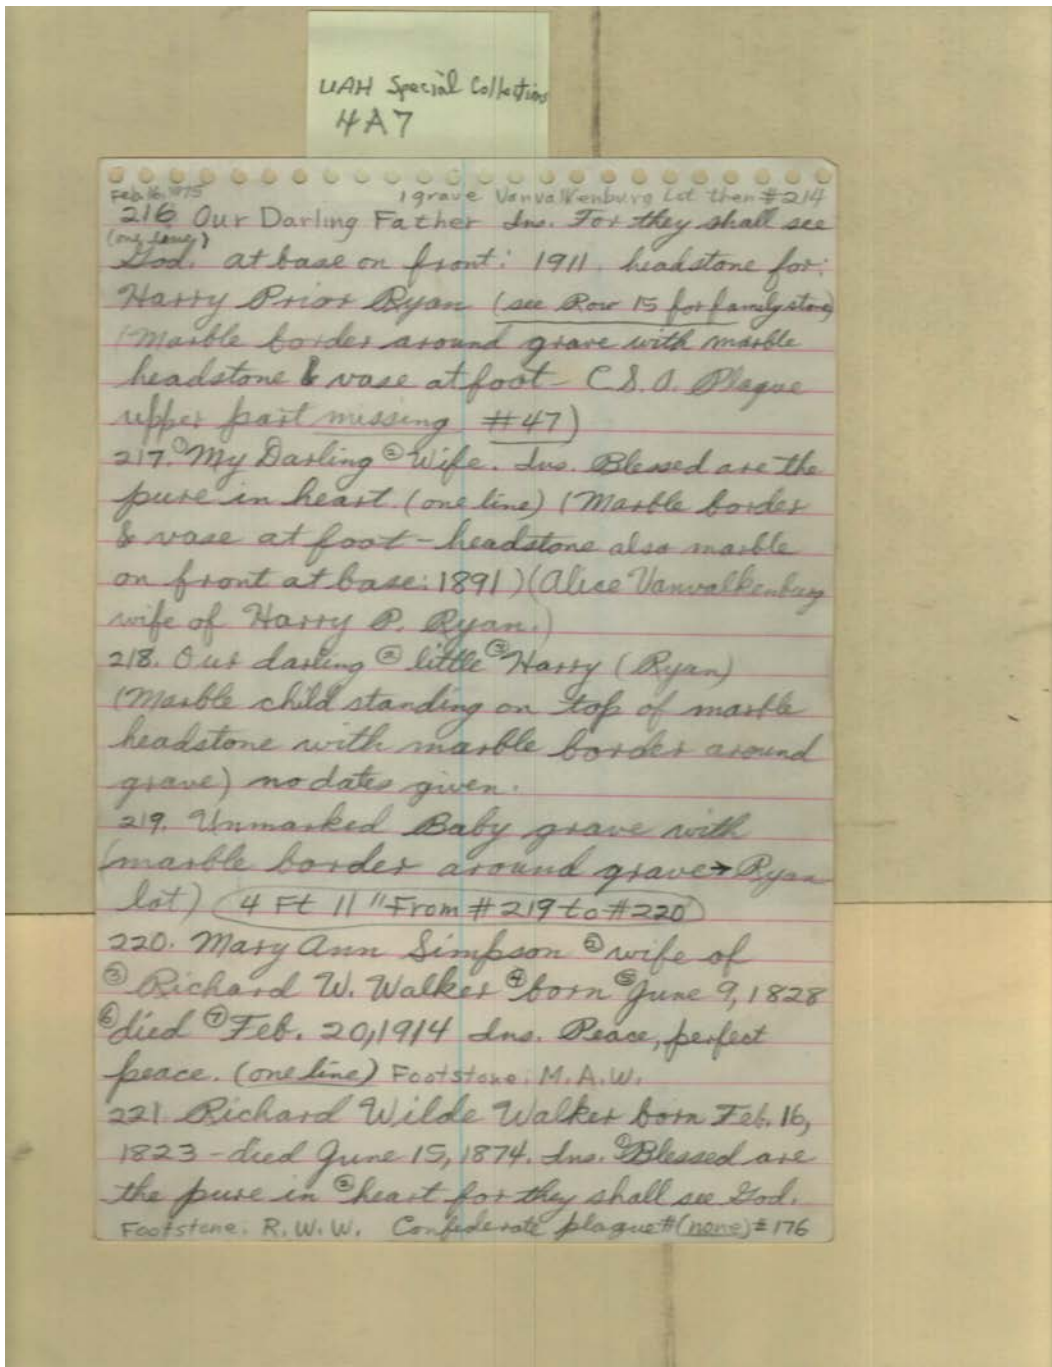 UAH Special Collections
4A7
Feb 16, 1975 1 grave Vanvalkenburg Lot then #214
216 Our Darling Father Ins. For they shall see
(one line)
God. at base on front: 1911. headstone for:
Harry Prior Ryan (see Row 15 for family stone)
(Marble border around grave with marble
headstone & vase at foot - C.S.A. Plaque
upper part missing #47)
217. ① My Darling ② Wife. Ins. Blessed are the
pure in heart (one line) (Marble border
& vase at foot - headstone also marble
on front at base: 1891) (Alice Vanvalkenburg
wife of Harry P. Ryan.)
218. Our darling ② little ③ Harry (Ryan)
(Marble child standing on top of marble
headstone with marble border around
grave) no dates given.
219. Unmarked Baby grave with
(marble border around grave → Ryan
lot) 4 Ft 11" From #219 to #220
220. Mary Ann Simpson ② wife of
③ Richard W. Walker ④ born ⑤ June 9, 1828
⑥ died ⑦ Feb. 20, 1914 Ins. Peace, perfect
peace. (one line) Footstone: M.A.W.
221 Richard Wilde Walker born Feb. 16,
1823 - died June 15, 1874. Ins. ① Blessed are
the pure in ② heart for they shall see God.
Footstone: R.W.W. Confederate plaque # (none) #176